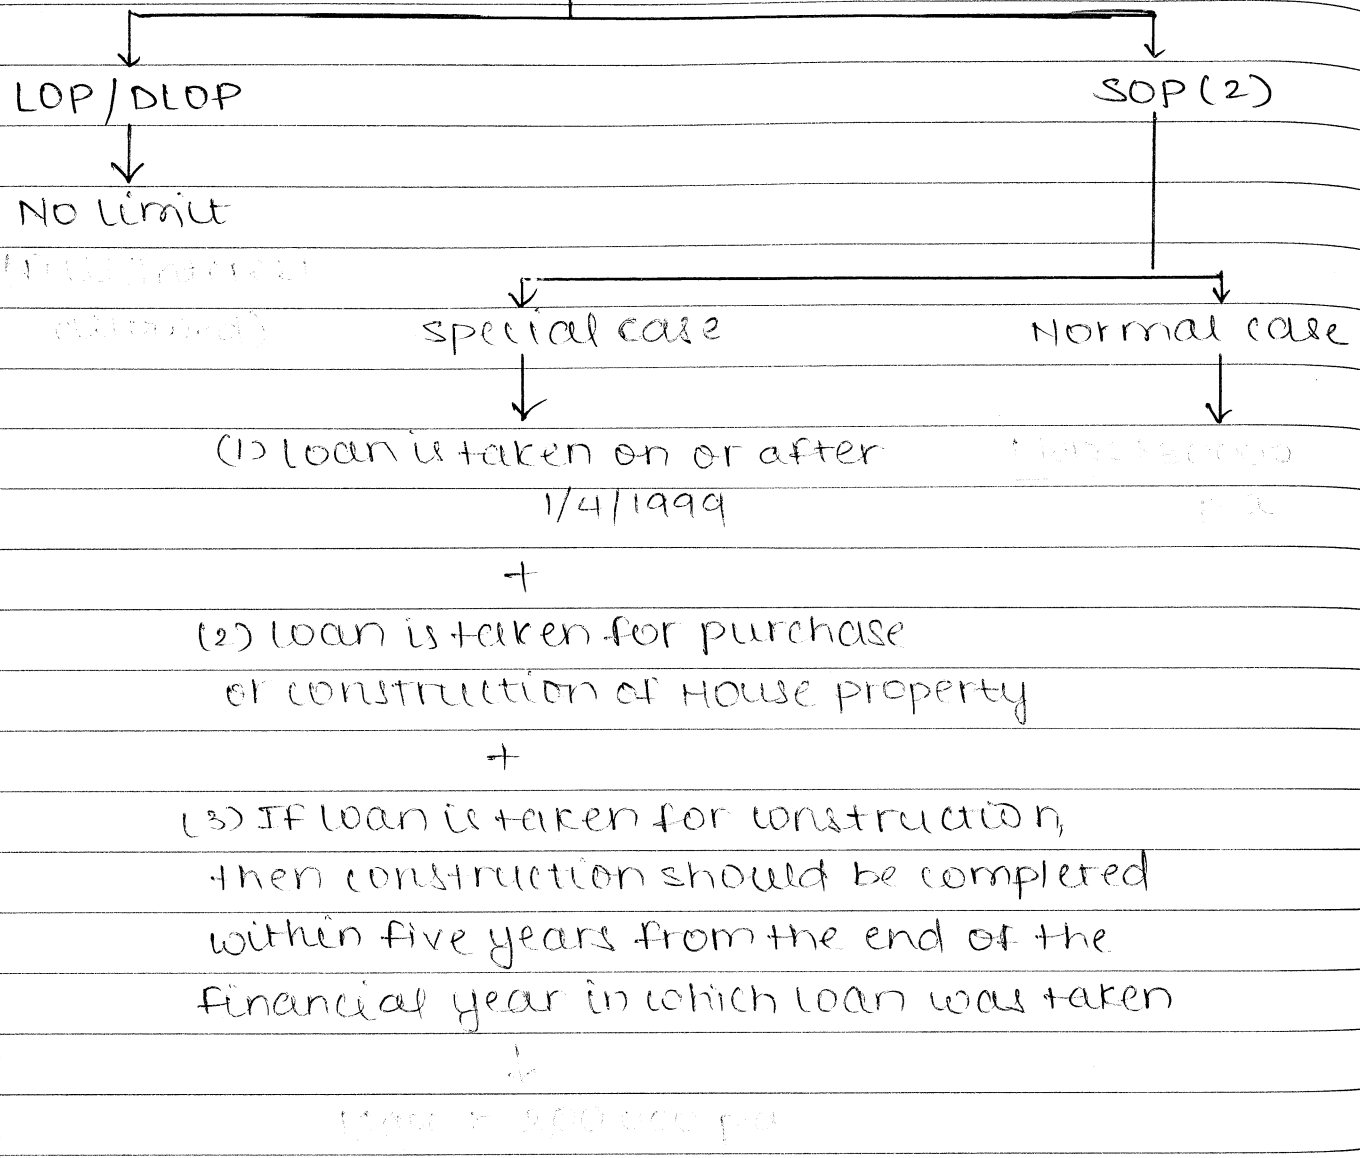 LOP/DLOP
SOP(2)
No limit
special case
Normal case
(1) loan is taken on or after
1/4/1999
+
(2) loan is taken for purchase
or construction of House property
+
(3) If loan is taken for construction,
then construction should be completed
within five years from the end of the
financial year in which loan was taken